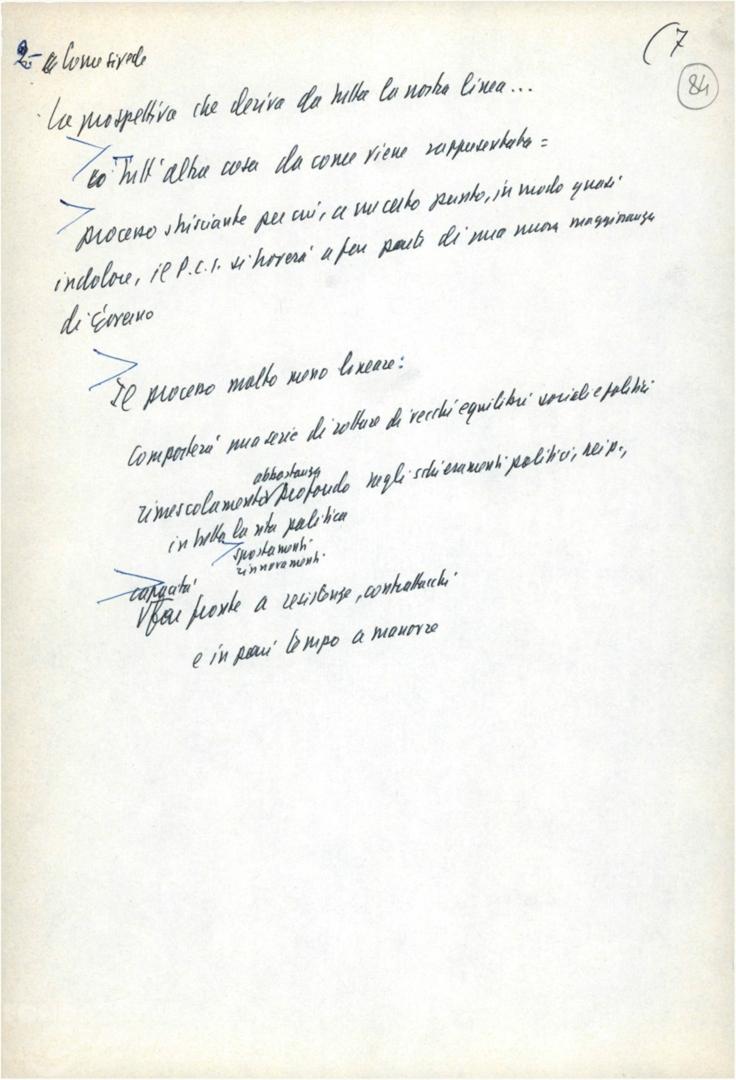 (7
84
2- Come si vede
La prospettiva che deriva da tutta la nostra linea...
è tutt'altra cosa da come viene rappresentata =
processo strisciante per cui, a un certo punto, in modo quasi
indolore, il P.C.I. si troverà a far parte di una nuova maggioranza
di Governo
Il processo molto meno lineare:
Comporterà una serie di rotture di vecchi equilibri sociali e politici
abbastanza
rimescolamento profondo negli schieramenti politici, nei p.,
in tutta la vita politica
spostamenti
rinnovamenti
capacità
far fronte a resistenze, contrattacchi
e in pari tempo a manovre